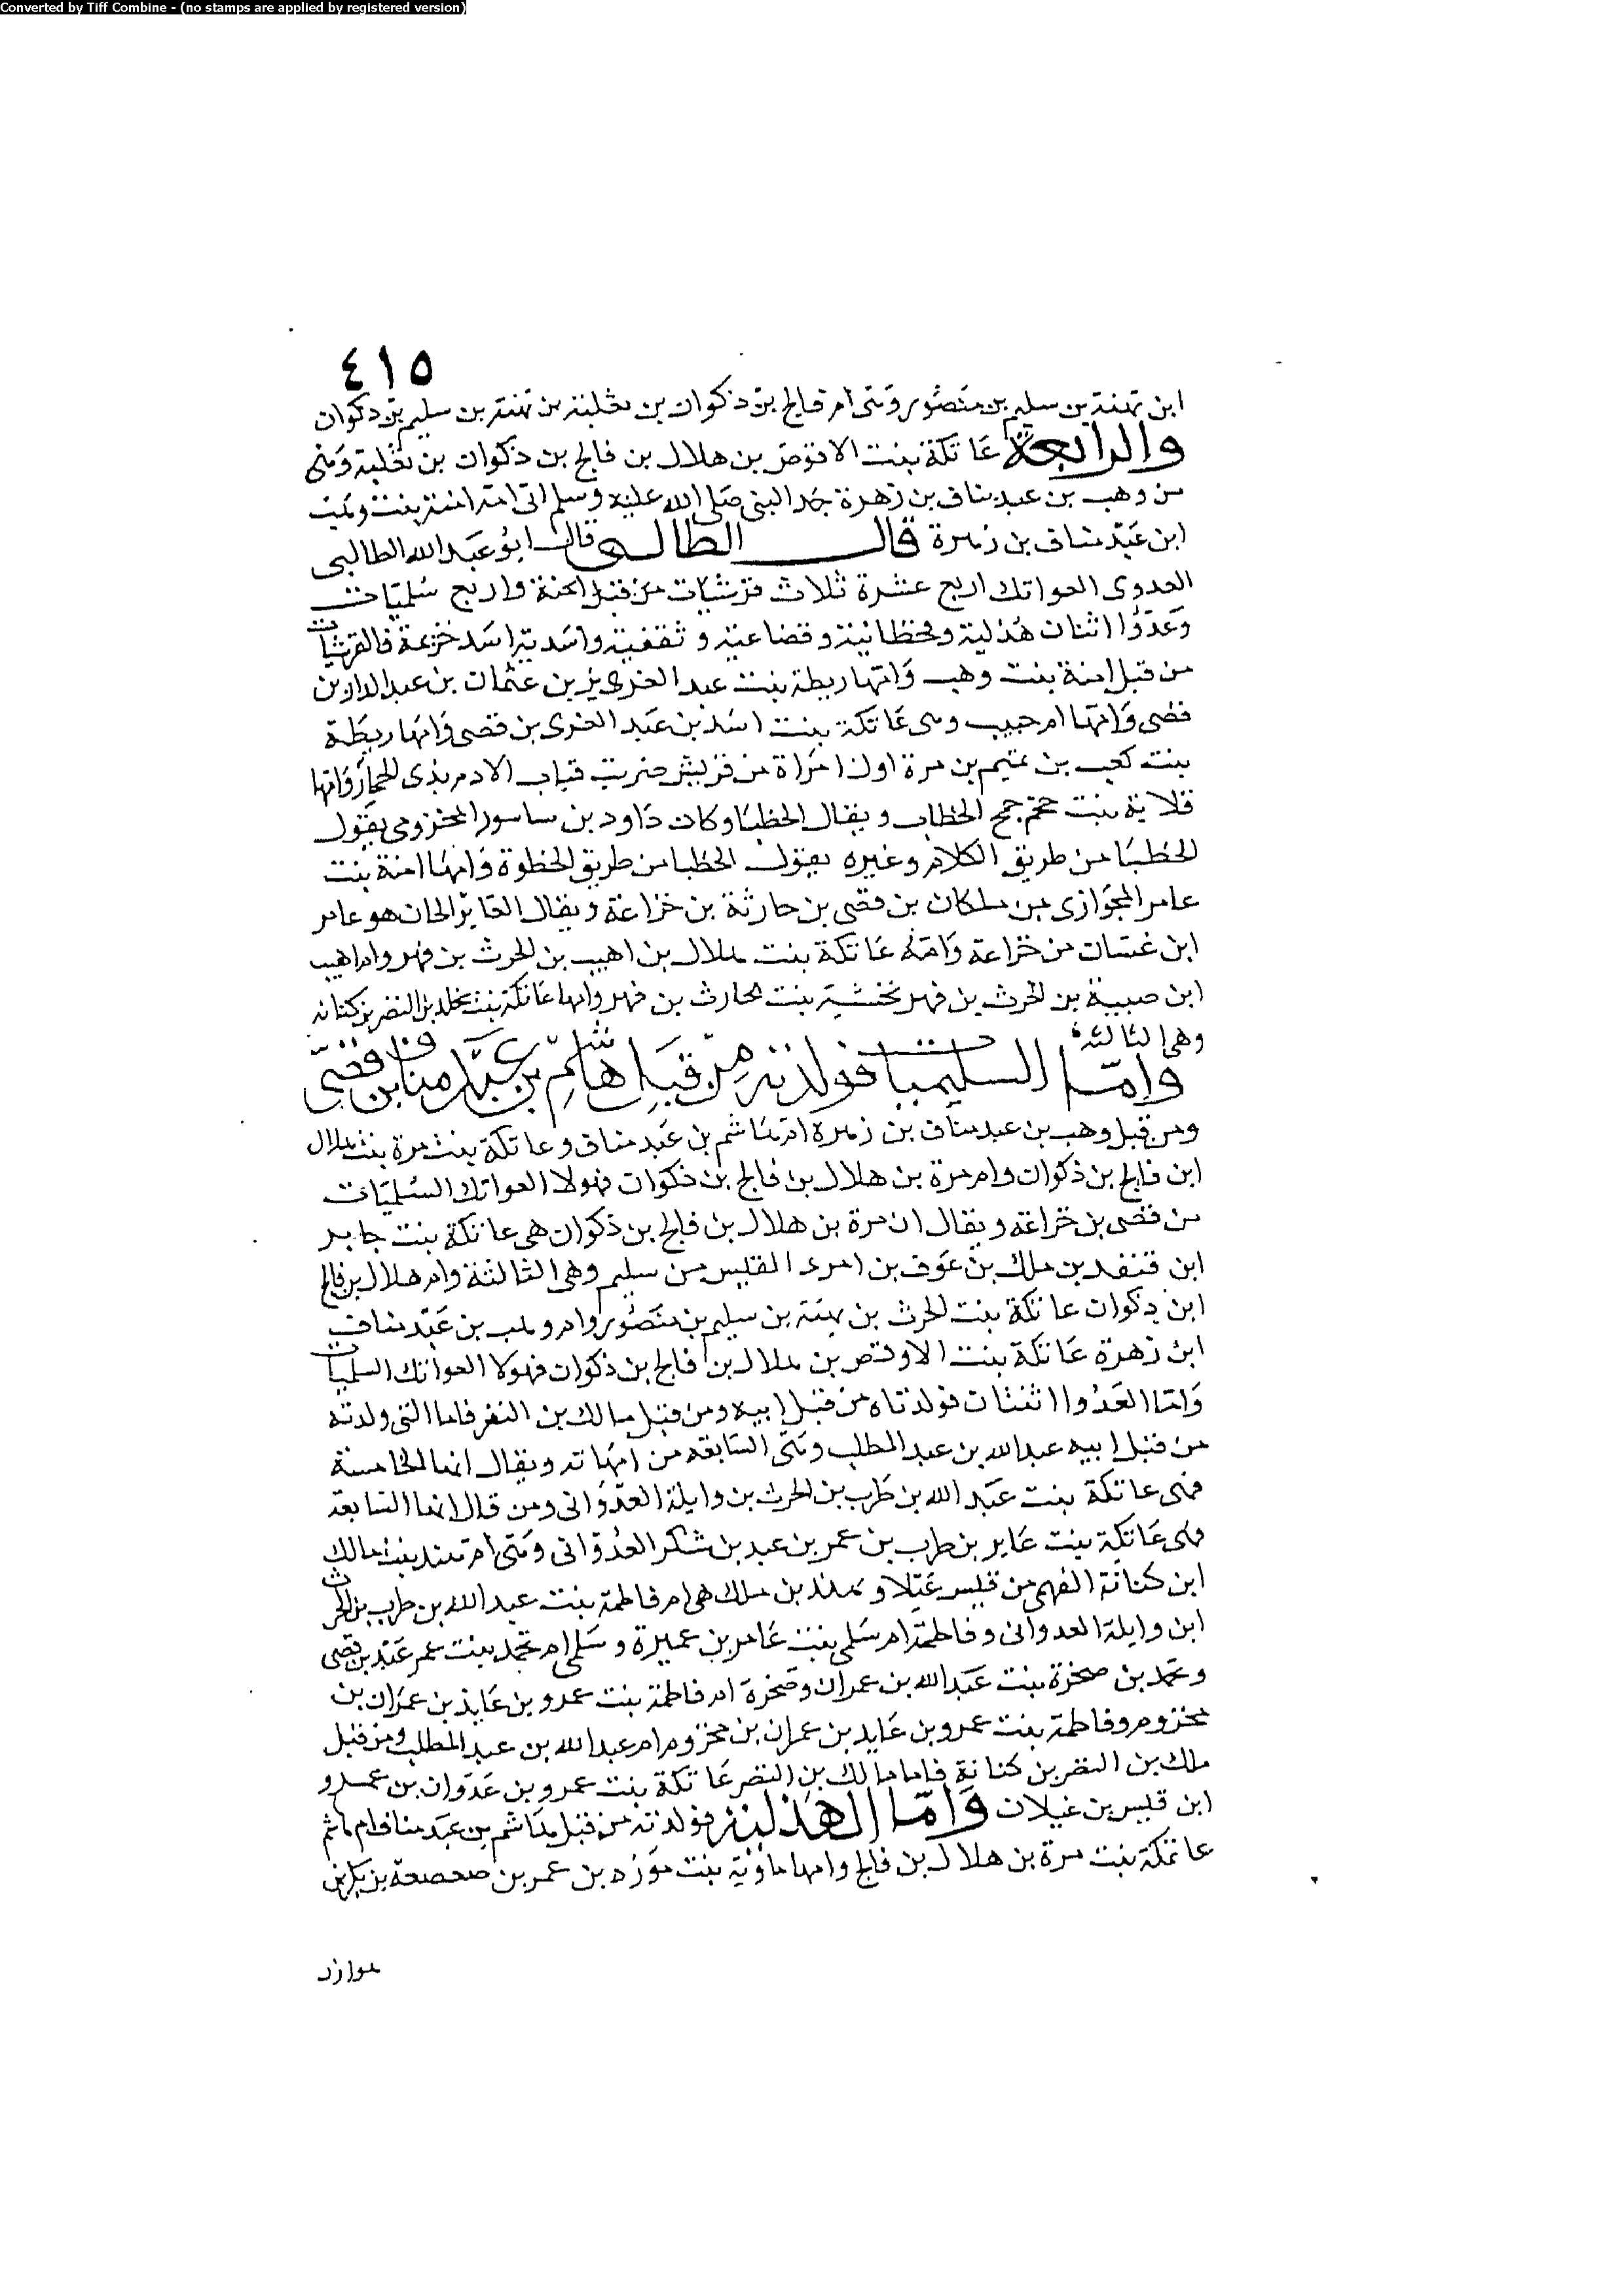 Converted by Tiff Combine - (no stamps are applied by registered version)
٤١٥
ابن بهثة بن سليم بن منصور وهى ام فالج بن ذكوان بن ثعلبة بن بهثة بن سليم بن ذكوان
والرابعة عاتكة بنت الاوقص بن هلال بن فالج بن ذكوان بن ثعلبة وهى
من وهب بن عبد مناف بن زهرة جد النبى صلى الله عليه وسلم ابى امه امنة بنت وهب
ابن عبد مناف بن زهرة قال الطالبى قال ابو عبد الله الطالبى
العدوى العواتك اربع عشرة ثلاث قرشيات من قبل امنة واربع سلميات
وعدوا اثنتان هذلية وقحطانية وقضاعية وثقفية واسدية اسد خزيمة فالقرشيات
من قبل امنة بنت وهب وامها ريطة بنت عبد العزى بن عثمان بن عبد الدار بن
قصى وامها ام حبيب وهى عاتكة بنت اسد بن عبد العزى بن قصى وامها ريطة
بنت كعب بن تيم بن مرة اول امراة من قريش ضربت قباب الادم بذى المجاز وامها
قلابة بنت جمح الخطاب ويقال الحظيا وكان داود بن المخزومى يقول
الخطبا من طريق الكلام وغيره يقول الحظيا من طريق الحظوة وامها امنة بنت
عامر بن ملكان بن قصى بن حارثة بن خزاعة ويقال الحان هو عامر
ابن غسان من خزاعة وامه عاتكة بنت هلال بن اهيب بن الحرث بن فهر وام اهيب
ابن بن الحرث بن فهر بنت الحارث بن فهر وامها عاتكة بنت يخلد بن النضر بن كنانه
وهى الثالثة
واما السليميات فولدنه من قبل هاشم بن عبد مناف بن قصى
ومن قبل وهب بن عبد مناف بن زهرة ام هاشم بن عبد مناف وعاتكة بنت مرة بنت هلال
ابن فالج بن ذكوان وام مرة بن هلال بن فالج بن ذكوان فهولا العواتك السلميات
من قصى بن خزاعه ويقال ان مرة بن هلال بن فالج بن ذكوان هى عاتكة بنت جابر
ابن قنفد بن ملك بن عوف بن امرى القيس من سليم وهى الثالثة وام هلال بن فالج
ابن ذكوان عاتكة بنت الحرث بن بهثة بن سليم بن منصور وام وهب بن عبد مناف
ابن زهرة عاتكة بنت الاوقص بن هلال بن فالج بن ذكوان فهولا العواتك السلميات
واما العدوا اثنتان فولدتاه من قبل ابيه ومن قبل مالك بن النضر فاما التى ولدته
من قبل ابيه عبد الله بن عبد المطلب وهى السابعه من امهاته ويقال انها الخامسة
فهى عاتكة بنت عبد الله بن ظرب بن الحرث بن وايلة العدوانى ومن قال انها السابعة
فهى عاتكة بنت عابر بن ظرب بن عمر بن عبد بن شكر العدوانى وهى ام هند بنت مالك
ابن كنانة الفهمى من قيس غيلا وهند بن ملك هى ام فاطمة بنت عبد الله بن ظرب بن الحرث
ابن وايلة العدوانى وفاطمة ام سلمى بنت عامر بن عميرة وسلمى ام تخمد بنت عمر عبد بن قصى
وتخمد بن صخرة بنت عبد الله بن عمران وصخرة ام فاطمة بنت عمرو بن عايذ بن عمران بن
مخزوم وفاطمة بنت عمرو بن عايد بن عمران بن مخزوم ام عبد الله بن عبد المطلب ومن قبل
ملك بن النضر بن كنانة فاما مالك بن النضر عاتكة بنت عمرو بن عدوان بن عمرو
ابن قيس بن غيلان واما الهذلية فولدته من قبل هاشم بن عبد مناف ام هاشم
عاتكة بنت مرة بن هلال بن فالج وامها ماوية بنت حوزه بن عمر بن صعصعة بن بكر بن
هوازن